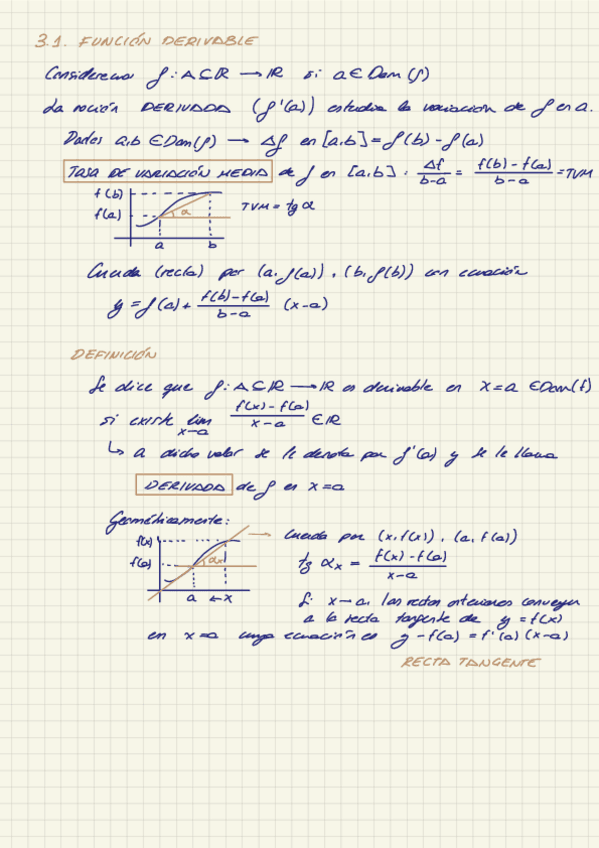 3.1. FUNCIÓN DERIVABLE
Consideremos f: A ⊆ ℝ → ℝ si a ∈ Dom(f)
La noción DERIVADA (f'(a)) estudia la variación de f en a.
Dados a,b ∈ Dom(f) → Δf en [a,b] = f(b) - f(a)
TASA DE VARIACIÓN MEDIA de f en [a,b] : Δf/(b-a) = (f(b) - f(a))/(b-a) = TVM
f(b)
f(a)
α
TVM = tg α
a b
Cuerda (recta) por (a, f(a)), (b, f(b)) con ecuación
y = f(a) + (f(b)-f(a))/(b-a) (x-a)
DEFINICIÓN
Se dice que f: A ⊆ ℝ → ℝ es derivable en x=a ∈ Dom(f)
si existe lim x→a (f(x) - f(a))/(x-a) ∈ ℝ
↳ a dicho valor se le denota por f'(a) y se le llama
DERIVADA de f en x=a
Geométricamente:
f(x)
f(a)
αx
a ← x
→ Cuerda por (x, f(x)), (a, f(a))
tg αx = (f(x) - f(a))/(x-a)
Si x→a, las rectas anteriores convergen
a la recta tangente de y = f(x)
en x=a cuya ecuación es y - f(a) = f'(a) (x-a)
RECTA TANGENTE